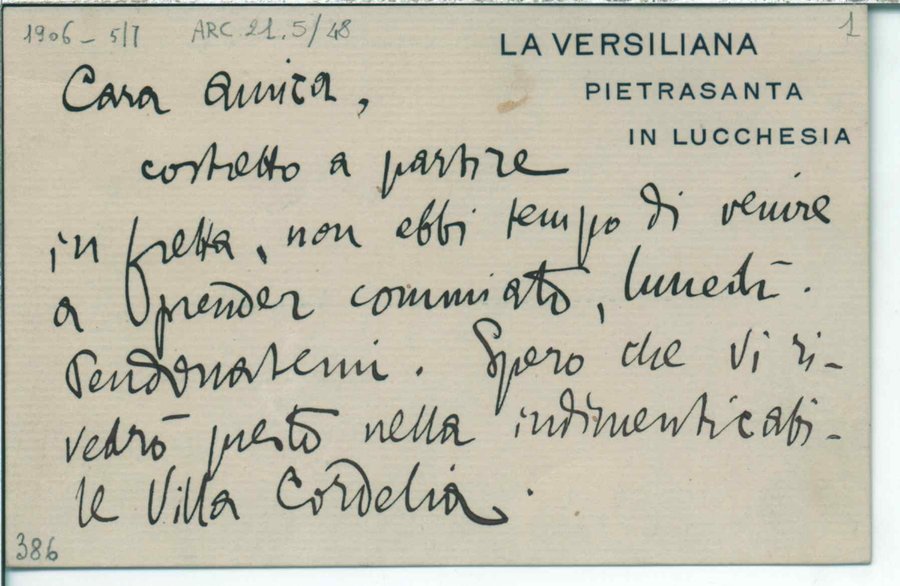 1906 - 5/7 ARC 21.5/48
1
LA VERSILIANA
PIETRASANTA
IN LUCCHESIA
Cara amica,
costretto a partire
in fretta, non ebbi tempo di venire
a prender commiato, lunedì.
Perdonatemi. Spero che vi ri-
vedrò presto nella indimenticabi-
le Villa Cordelia.
386